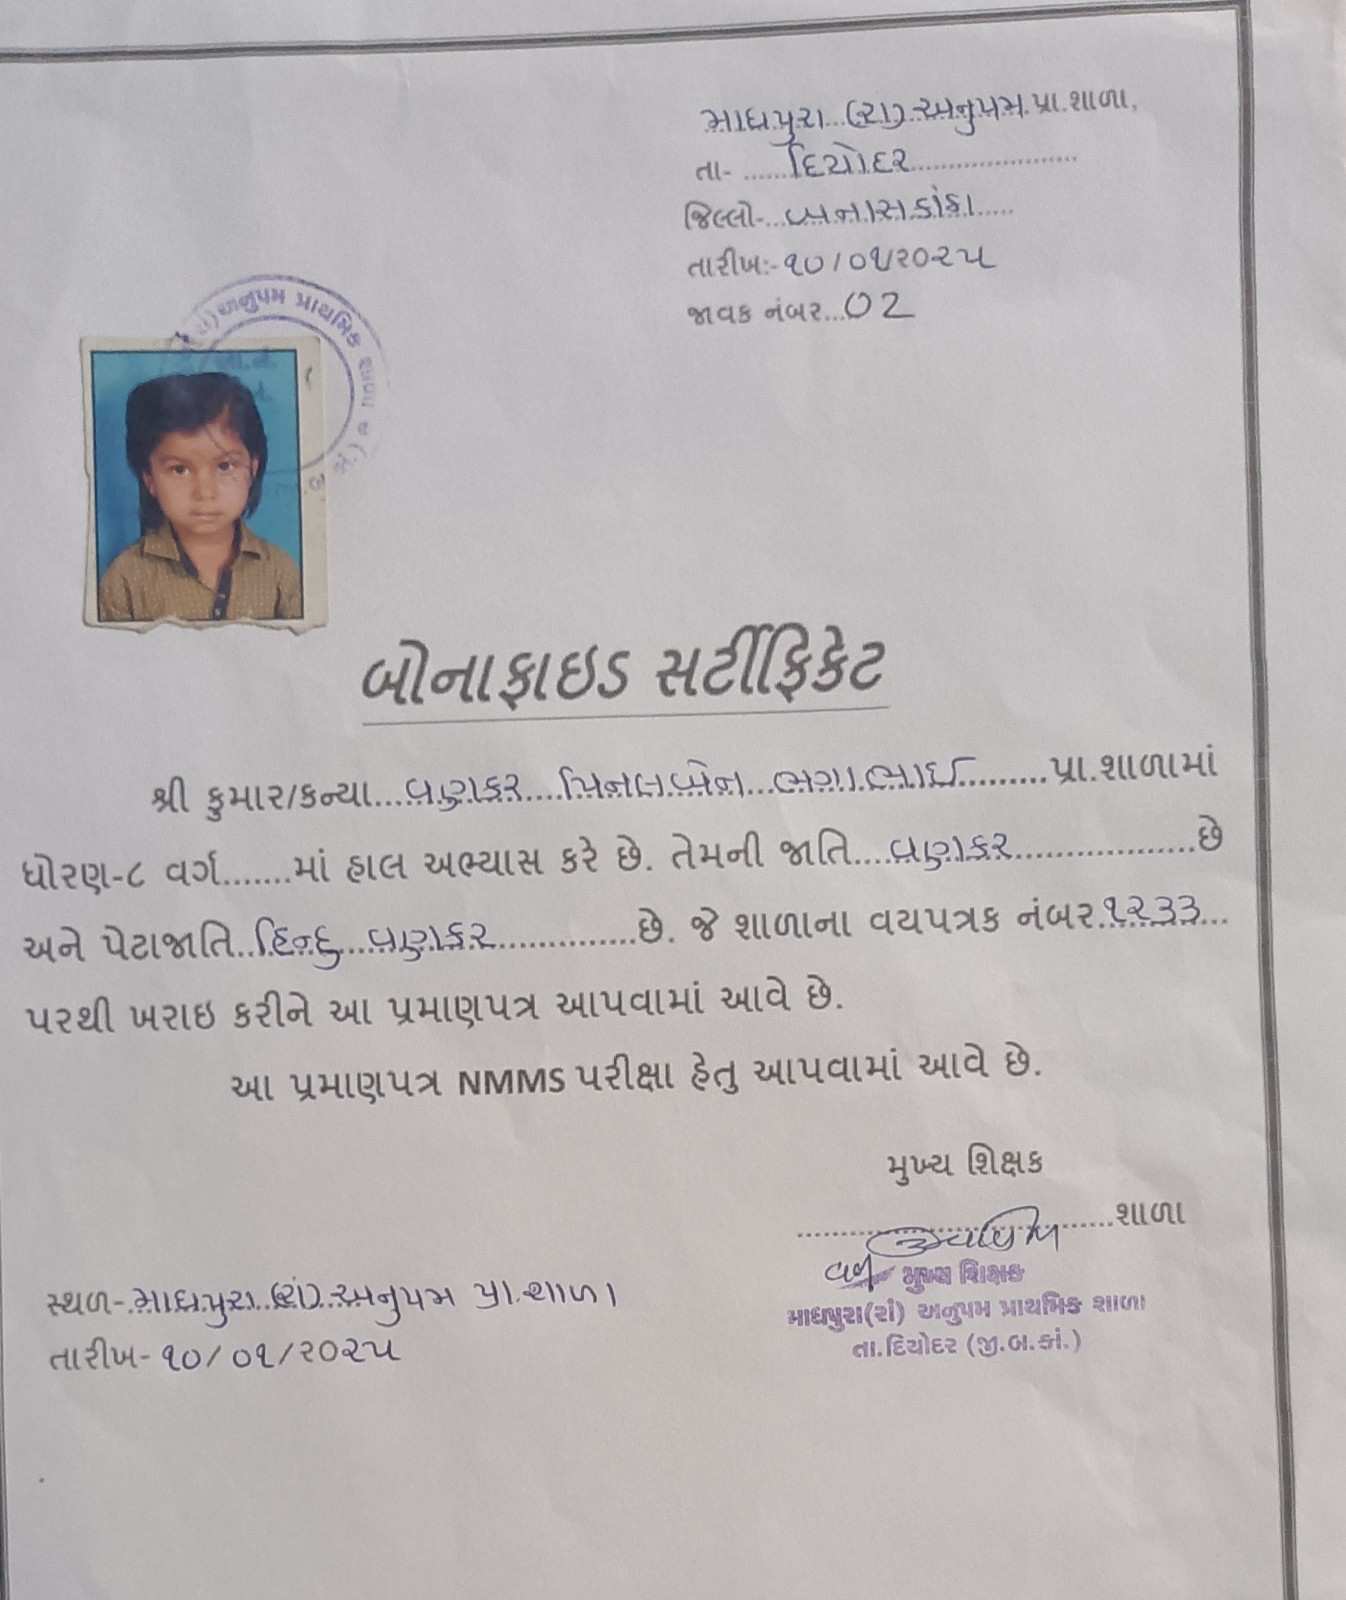 માધપુરા (રા) અનુપમ પ્રા.શાળા,
તા- ......દિયોદર......................
જિલ્લો-...બનાસકાંઠા.....
તારીખઃ-૧૦/૦૧/૨૦૨૫
જાવક નંબર...૦૨
અનુપમ પ્રાથમિક શાળા
બોનાફાઇડ સર્ટીફિકેટ
શ્રી કુમાર/કન્યા...વણકર....પિનલબેન...ભગાભાઈ.........પ્રા.શાળામાં
ધોરણ-૮ વર્ગ.......માં હાલ અભ્યાસ કરે છે. તેમની જાતિ....વણકર..................છે
અને પેટાજાતિ..હિન્દુ...વણકર..............છે. જે શાળાના વયપત્રક નંબર.૧૨૩૩...
પરથી ખરાઇ કરીને આ પ્રમાણપત્ર આપવામાં આવે છે.
આ પ્રમાણપત્ર NMMS પરીક્ષા હેતુ આપવામાં આવે છે.
મુખ્ય શિક્ષક
......................................શાળા
મુખ્ય શિક્ષક
માધપુરા(રાં) અનુપમ પ્રાથમિક શાળા
તા.દિયોદર (જી.બ.કાં.)
સ્થળ-માધપુરા (રાં) અનુપમ પ્રા.શાળા
તારીખ- ૧૦/૦૧/૨૦૨૫